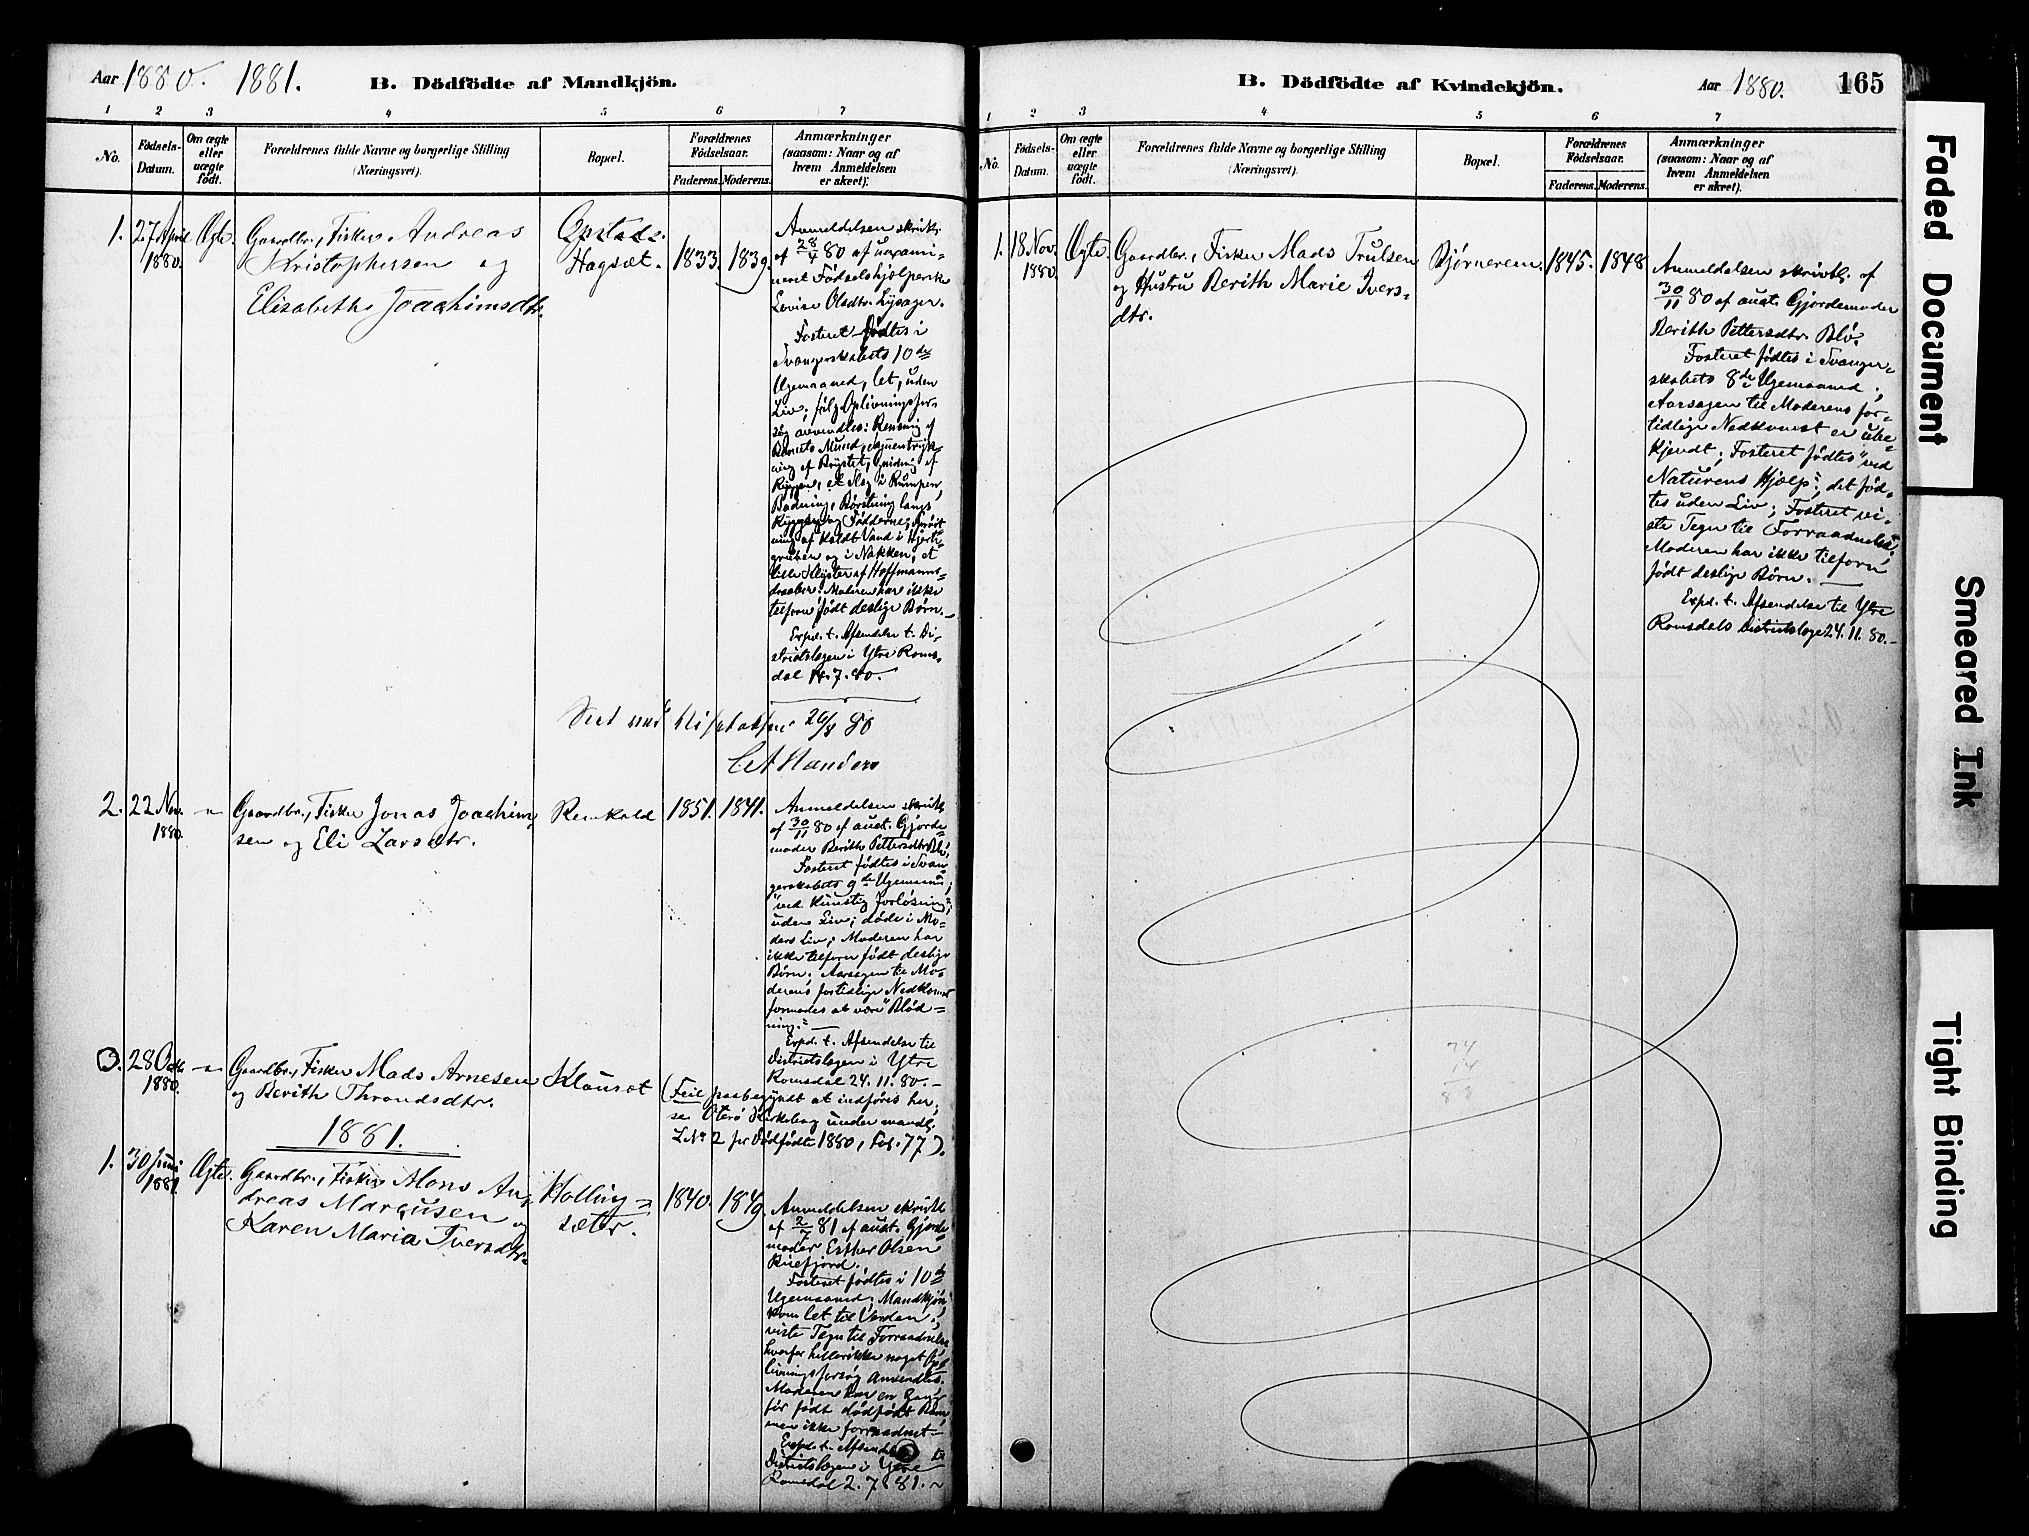 Aar 1880. 1881. B. Dödfödte af Mandkjön.
1 2 3 4 5 6 7
No.
Födsels-
Datum.
Om ægte
eller
uægte
födt.
Forældrenes fulde Navne og borgerlige Stilling
(Næringsvei).
Bopæl.
Forældrenes
Födselsaar.
Faderens. Moderens.
Anmærkninger
(saasom: Naar og af
hvem Anmeldelsen
er skeet).
1. 27 April
1880.
Ægte.
Gaardbr., Fisker Andreas
Kristophersen og
Elisabeth Joachimsdtr.
Opstad-
Hagsæt.
1833. 1839.
Anmeldelsen skriftl.
af 28/4 80 af uexami-
neret Fødselshjælperske
Lovise Olsdtr. Lysager.
Fosteret fødtes i
Svangerskabets 10de
Ugemaaned, let, uden
Liv; følg. Oplivningsfor-
søg anvendtes: Rensning af
Barnets Mund, sammentryk-
ning af Brystet, gnidning af
Ryggen, et Slag i Rumpen,
Badning, Børstning langs
Ryggen og Fødderne,
ning af koldt Vand i Hjerte-
gruben og i Nakken, et
lille Klyster af Hoffmanns-
draaber. Moderen har ikke
tilforn født deslige Børn.
Exped. t. Afsendelse t. Di-
striktslægen i Ytre Roms-
dal 14.7.80.
26/8 80
2. 22 Nov.
1880.
"
Gaardbr., Fisker Jonas Joachim-
sen og Eli Larsdtr.
Renkold
1851. 1841.
Anmeldelsen skriftl.
af 30/11 80 af ansat. Gjorde-
moder Berith Pettersdtr. Blø,
Fosteret fødtes i Svan-
gerskabets 9de Ugemaaned,
"ved kunstig Forløsning",
uden Liv; døde i Mo-
ders Liv; Moderen har
ikke tilforn født deslige
Børn. Aarsagen til Mo-
derens fortidlige Nedkomst
formodes at være "Blød-
ning."
Exped. t. Afsendelse til
Distriktslægen i Ytre
Romsdal 24.11.80.
3. 28 Octb.
1880.
"
Gaardbr., Fisker Mads Arnesen
og Berith Throndsdtr.
Klauset
(Feil paabegyndt at indføres her;
se Oterø Kirkebog under mandl.
LNo 2 for Dødfødte 1880, Fol. 77).
1881.
1. 30 Juni
1881.
Ægte.
Gaardbr., Fisker Mons An-
dreas Marcusen og
Karen Maria Iversdtr.
Holling-
sæter.
1840. 1849.
Anmeldelsen skriftl.
af 2/7 81 af ansat. Gjorde-
moder Esther Olsen
Fosteret fødtes i 10de
Ugemaaned; Mandkjøn,
kom let til Verden;
viste Tegn til Forraadnelse
hvorfor heller ikke noget Op-
livningsforsøg anvendtes.
Moderen har en Gang
før født dødfødt Barn,
men ikke forraadnet.
Exped. t. Afsendelse til
Distriktslægen i Ytre
Romsdal 2.7.81.
B. Dödfödte af Kvindekjön. Aar 1880. 165
1 2 3 4 5 6 7
No.
Födsels-
Datum.
Om ægte
eller
uægte
födt.
Forældrenes fulde Navne og borgerlige Stilling
(Næringsvei).
Bopæl.
Forældrenes
Födselsaar.
Faderens. Moderens.
Anmærkninger
(saasom: Naar og af
hvem Anmeldelsen
er skeet).
1. 18 Nov.
1880.
Ægte.
Gaardbr., Fisker Mads Trulsen
og Hustru Berith Marie Ivers-
dtr.
Bjørnerem.
1845. 1848
Anmeldelsen skriftl. af
30/11 80 af ansat. Gjordemoder
Berith Pettersdtr. Blø.
Fosteret fødtes i Svanger-
skabets 8de Ugemaaned;
Aarsagen til Moderens for-
tidlige Nedkomst er ube-
kjendt; Fosteret fødtes "ved
Naturens Hjælp"; det fød-
tes uden Liv; Fosteret vi-
ste Tegn til Forraadnelse;
Moderen har ikke tilforn
født deslige Børn.
Exped. t. Afsendelse til Ytre
Romsdals Distriktslæge 24.11.80.
74
14
88
Faded Document
Smeared Ink
Tight Binding